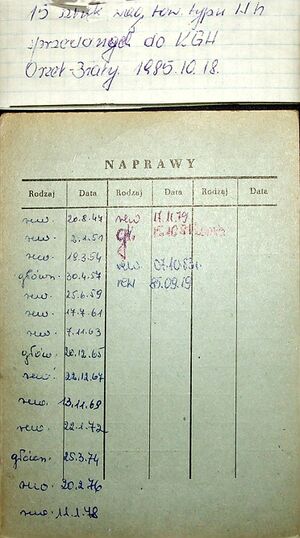 15 sztuk wag. tow. typu
sprzedanych do KGH
Orzeł-Biały. 1985.10.18.
NAPRAWY
Rodzaj Data Rodzaj Data Rodzaj Data
rew. 20.8.47 rew 17.11.79
rew. 2.1.51 gł.
rew. 19.3.54 rew. 07.10.83r.
główn. 30.4.57 rew 85.09.19
rew. 25.6.59
rew. 17.7.61
rew. 7.11.63
głów. 20.12.65
rew. 22.12.67
rew. 13.11.69
rew. 22.1.72
główn. 25.3.74
rew. 20.2.76
rew. 11.1.78